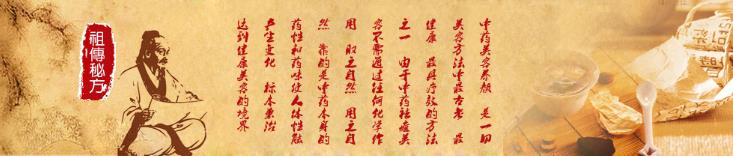 中药美容养颜 是一切
美容方法中最古老 最
健康 最具疗效的方法
之一 由于中药祛痘美
容不需通过任何化学作
用 取之自然 用之自
然 靠的是中药本身的
药性和药味使人体性能
产生变化 标本兼治
达到健康美容的境界
祖傳秘方